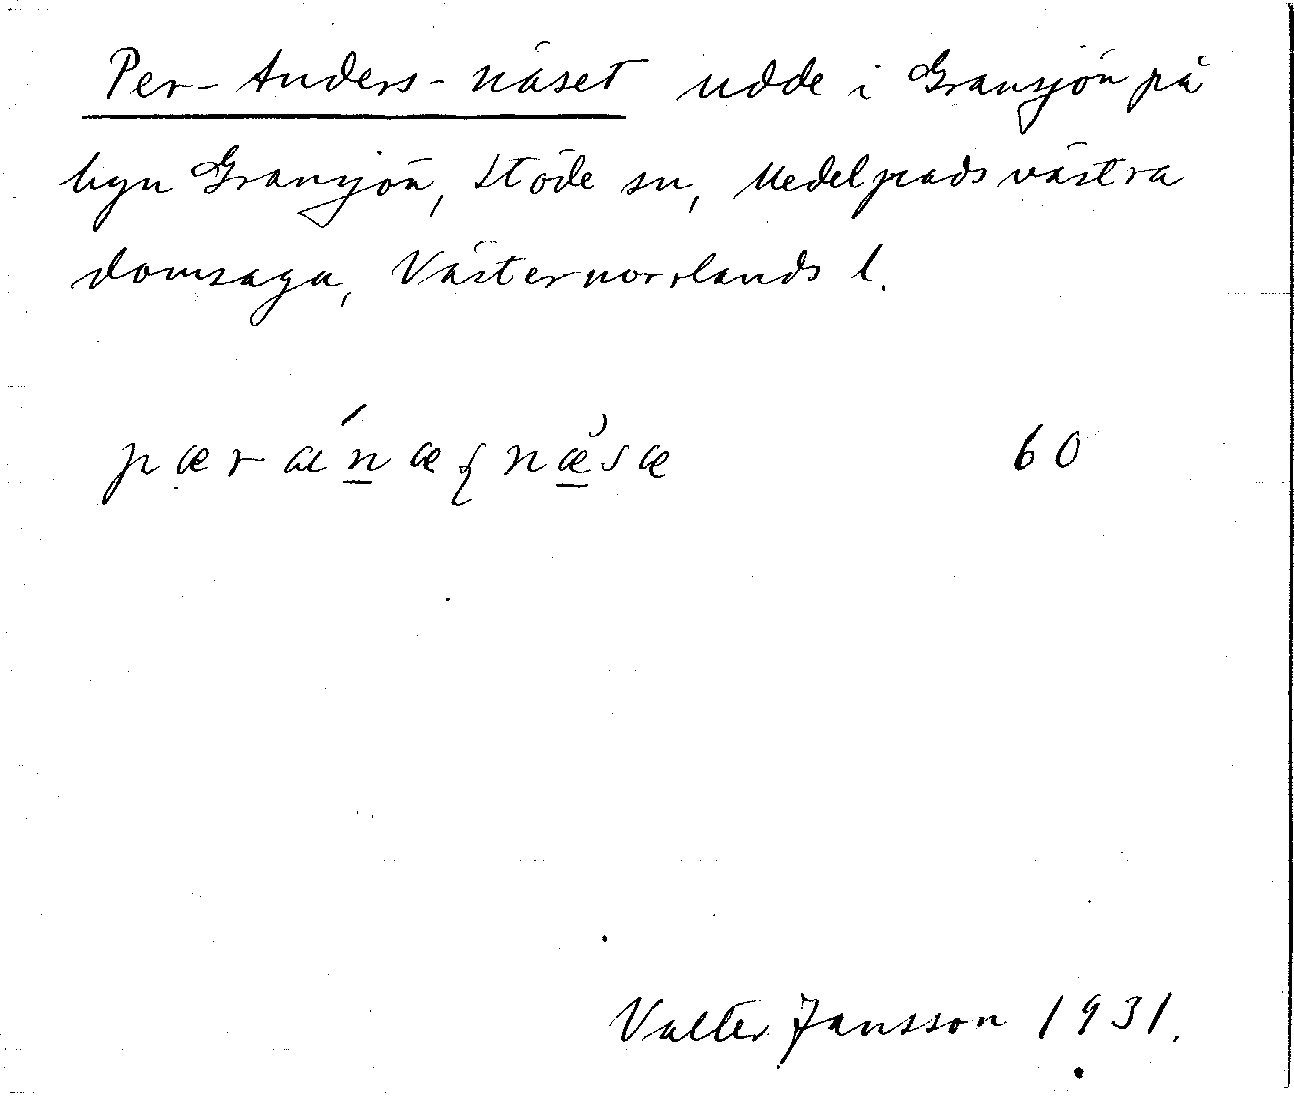 Per-Anders-näset udde i Gransjön på
byn Gransjön, Stöde sn, Medelpads västra
domsaga, Västernorrlands l.
60
Valter Jansson 1931.